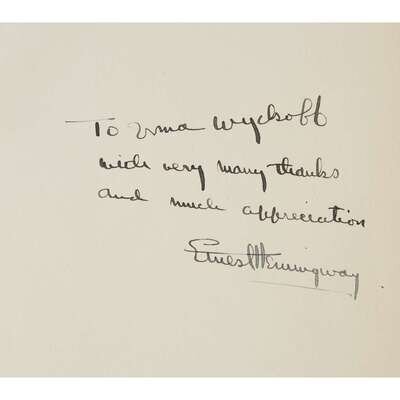 To Irma Wyckoff
with very many thanks
and much appreciation
Ernest Hemingway